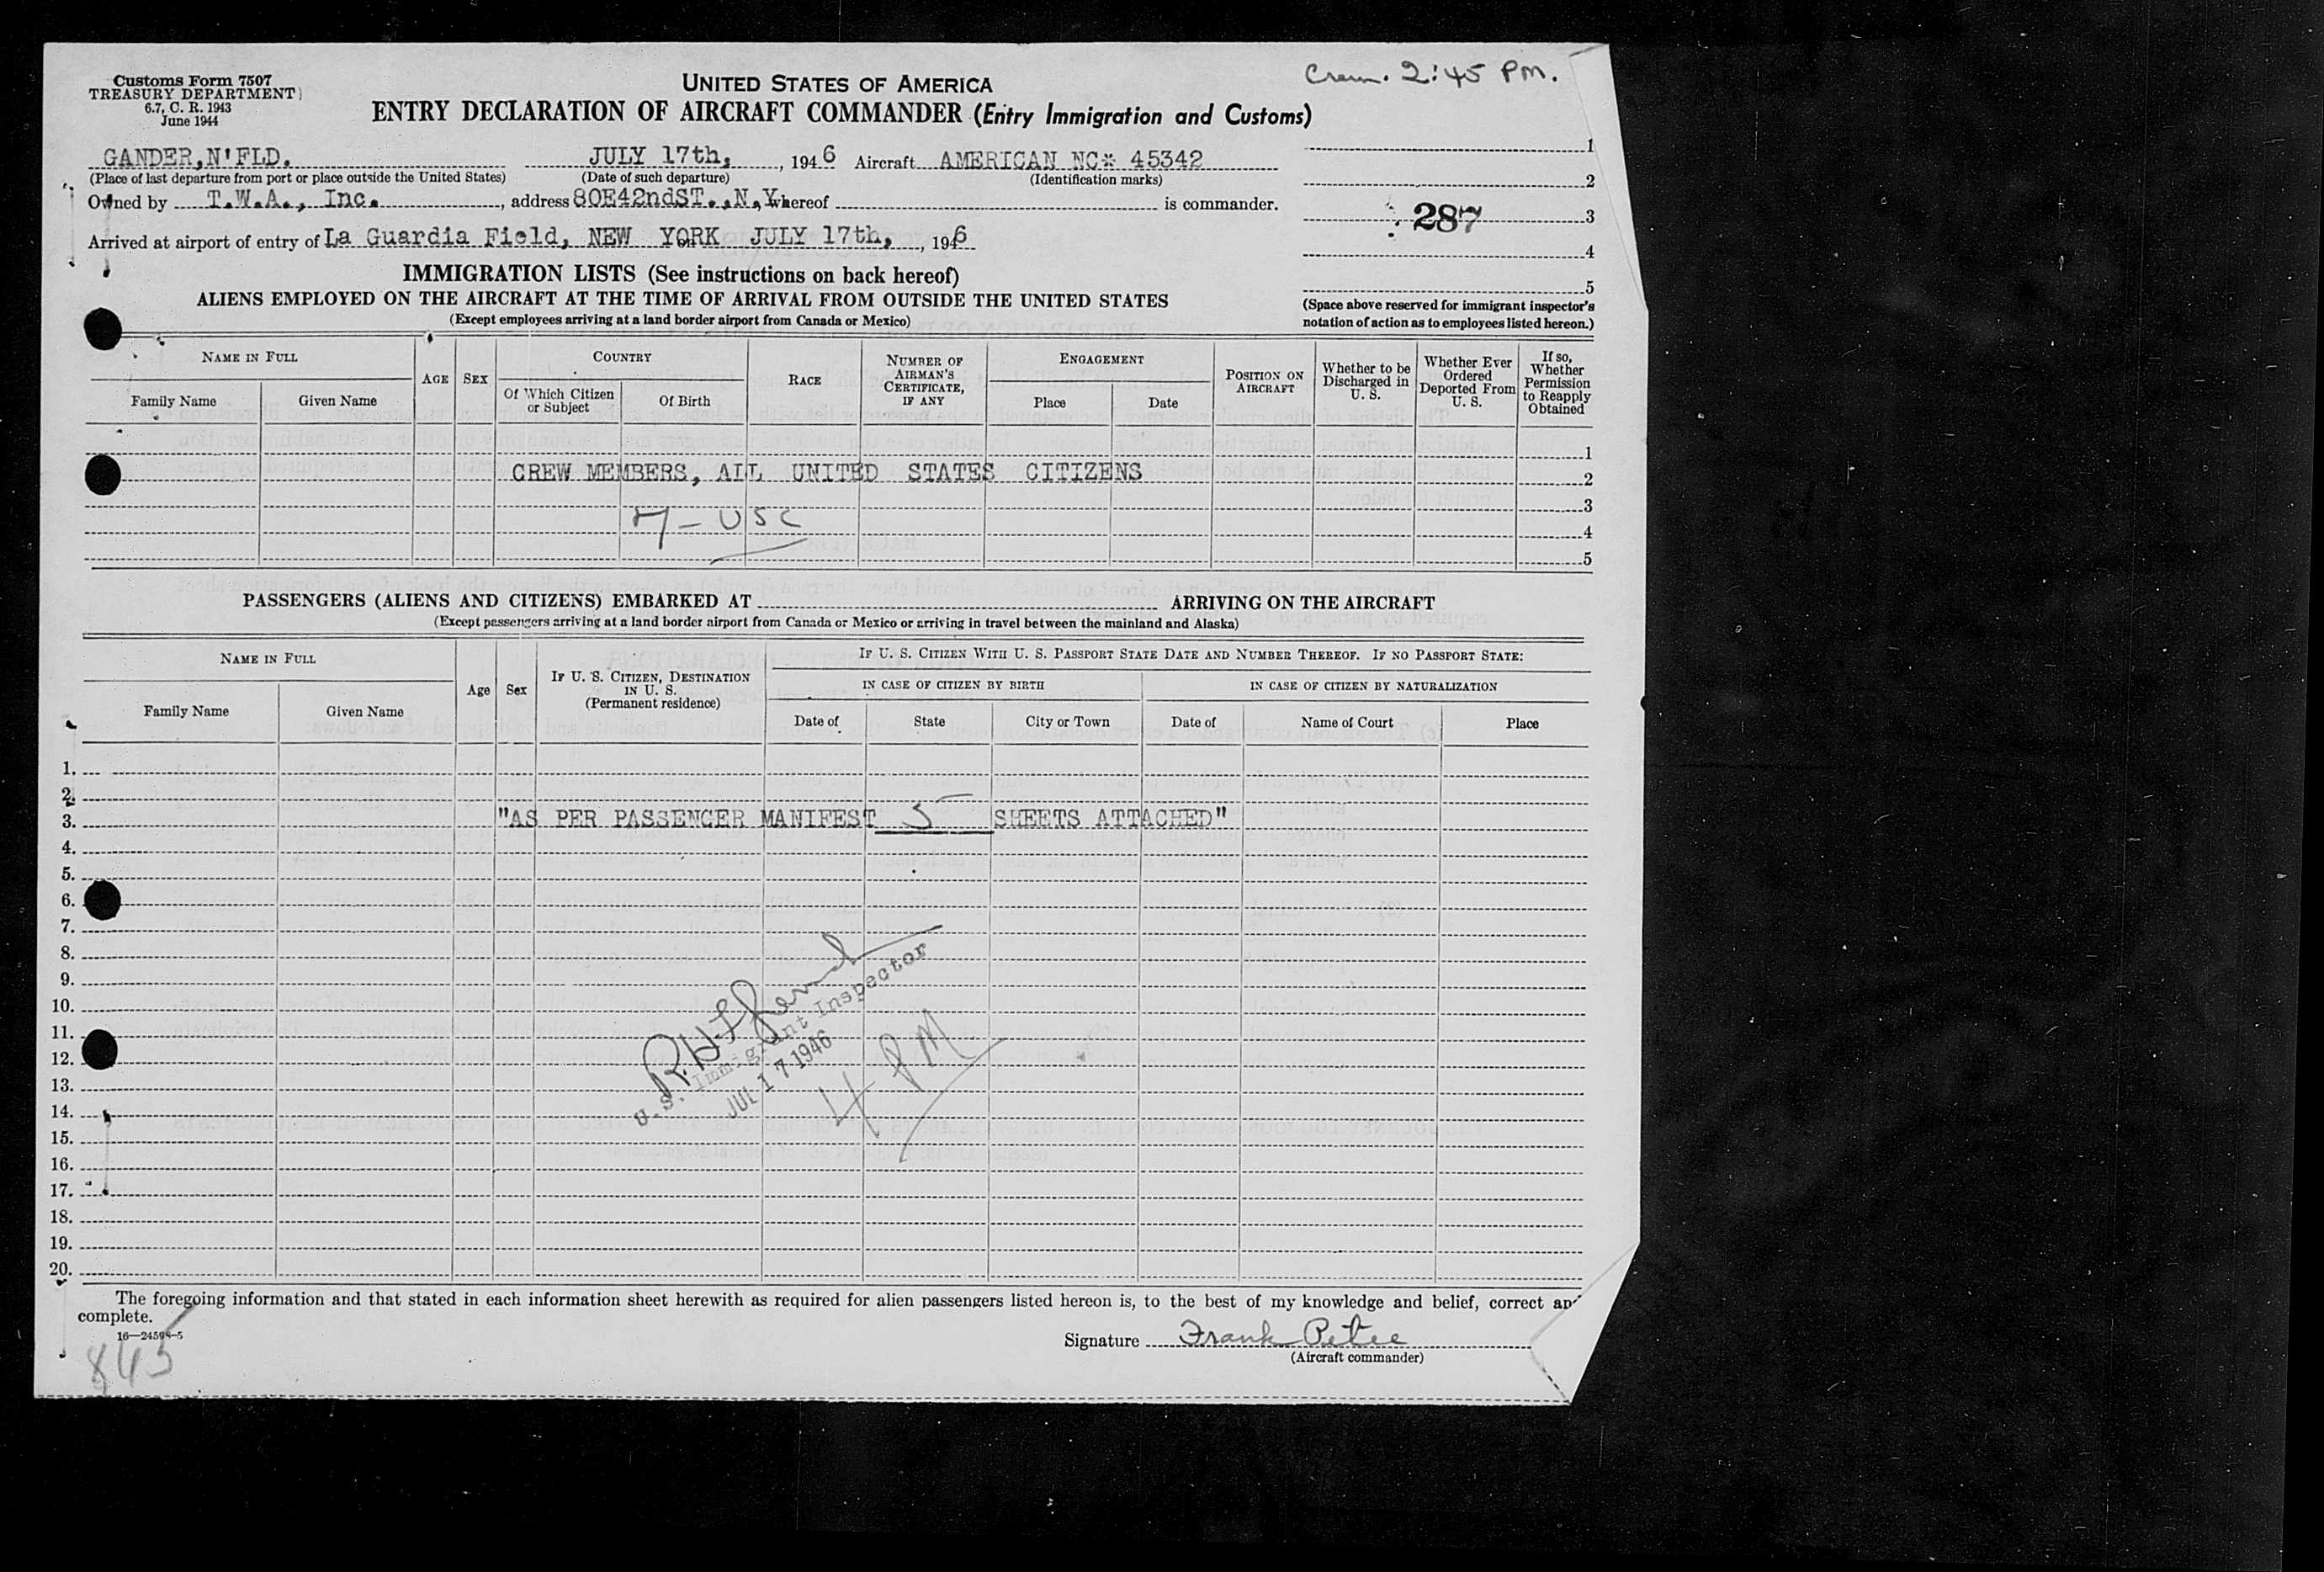 Customs Form 7507
TREASURY DEPARTMENT
6.7, C. R. 1943
June 1944
UNITED STATES OF AMERICA
ENTRY DECLARATION OF AIRCRAFT COMMANDER (Entry Immigration and Customs)
2:45 PM.
GANDER,N'FLD. JULY 17th, , 1946 Aircraft AMERICAN NC* 45342
(Place of last departure from port or place outside the United States) (Date of such departure) (Identification marks)
Owned by T.W.A., Inc. , address 80E42ndST.,N,Y whereof is commander.
Arrived at airport of entry of La Guardia Field, NEW YORK JULY 17th, , 1946
1
2
287 3
4
5
(Space above reserved for immigrant inspector's
notation of action as to employees listed hereon.)
IMMIGRATION LISTS (See instructions on back hereof)
ALIENS EMPLOYED ON THE AIRCRAFT AT THE TIME OF ARRIVAL FROM OUTSIDE THE UNITED STATES
(Except employees arriving at a land border airport from Canada or Mexico)
NAME IN FULL
Family Name
Given Name
AGE
SEX
COUNTRY
Of Which Citizen
or Subject
Of Birth
RACE
NUMBER OF
AIRMAN'S
CERTIFICATE,
IF ANY
ENGAGEMENT
Place
Date
POSITION ON
AIRCRAFT
Whether to be
Discharged in
U. S.
Whether Ever
Ordered
Deported From
U. S.
If so,
Whether
Permission
to Reapply
Obtained
1
CREW MEMBERS, ALL UNITED STATES CITIZENS 2
3
7 - USC 4
5
PASSENGERS (ALIENS AND CITIZENS) EMBARKED AT ARRIVING ON THE AIRCRAFT
(Except passengers arriving at a land border airport from Canada or Mexico or arriving in travel between the mainland and Alaska)
NAME IN FULL
Family Name
Given Name
Age
Sex
IF U. S. CITIZEN, DESTINATION
IN U. S.
(Permanent residence)
IF U. S. CITIZEN WITH U. S. PASSPORT STATE DATE AND NUMBER THEREOF. IF NO PASSPORT STATE:
IN CASE OF CITIZEN BY BIRTH
IN CASE OF CITIZEN BY NATURALIZATION
Date of
State
City or Town
Date of
Name of Court
Place
1.
2.
3. "AS PER PASSENGER MANIFEST 5 SHEETS ATTACHED"
4.
5.
6.
7.
8.
9.
10.
11.
12.
13.
14.
15.
16.
17.
18.
19.
20.
U.S. Immigrant Inspector
JUL 17 1946
4 PM
The foregoing information and that stated in each information sheet herewith as required for alien passengers listed hereon is, to the best of my knowledge and belief, correct and
complete.
16—24598-5
845
Signature Frank Petee
(Aircraft commander)